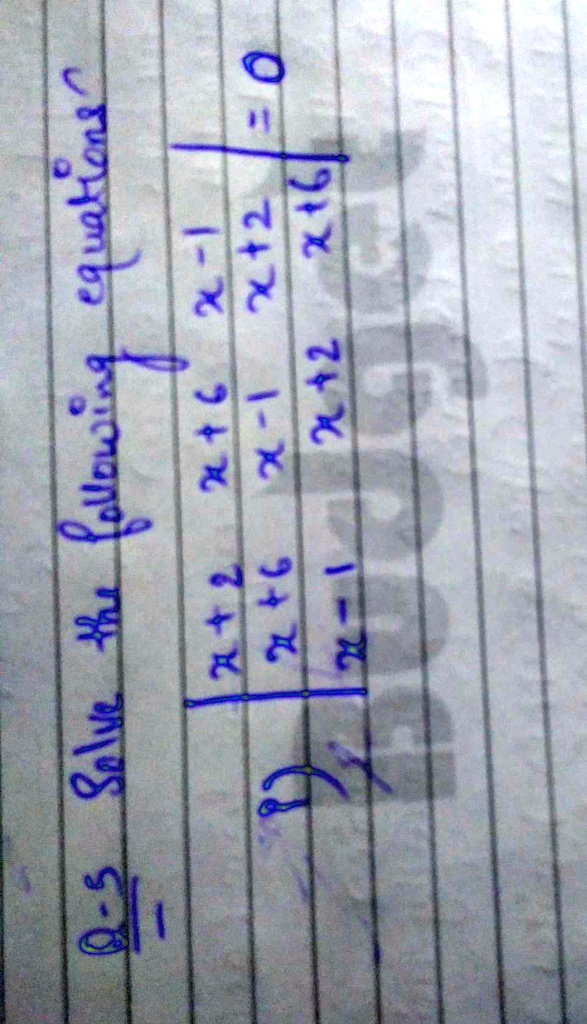 Q-5 Solve the following equations
i) | x+2 x+6 x-1 |
| x+6 x-1 x+2 | = 0
| x-1 x+2 x+6 |